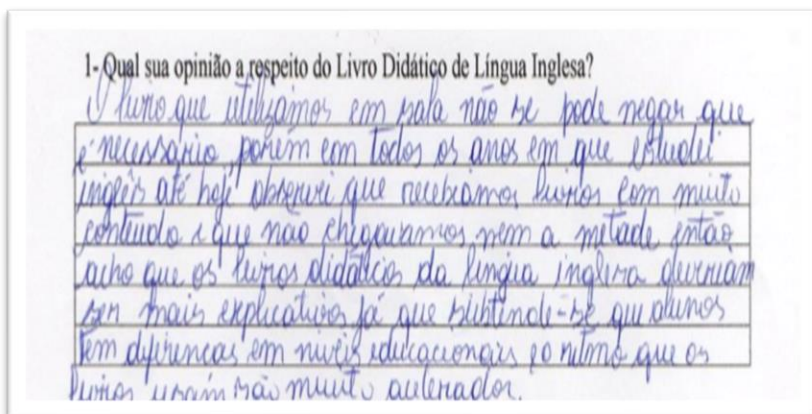 1- Qual sua opinião a respeito do Livro Didático de Língua Inglesa?
O livro que utilizamos em sala não se pode negar que
é necessário, porém em todos os anos em que estudei
inglês até hoje observei que recebíamos livros com muito
conteudo e que não chegavamos nem a metade então
acho que os livros didáticos da língua inglesa deveriam
ser mais explicativos já que subtende-se que alunos
tem diferenças em níveis educacionais e o ritmo que os
livros usam são muito acelerados.